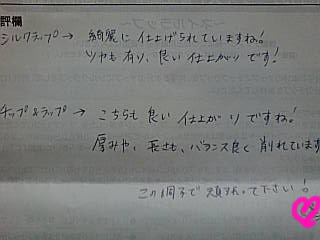 評欄
シルクラップ → 綺麗に仕上げられていますね!
ツヤも有り、良い仕上がりです!
チップ&ラップ → こちらも良い仕上がりですね!
厚みや、長さも、バランス良く削れています
この調子で頑張って下さい!